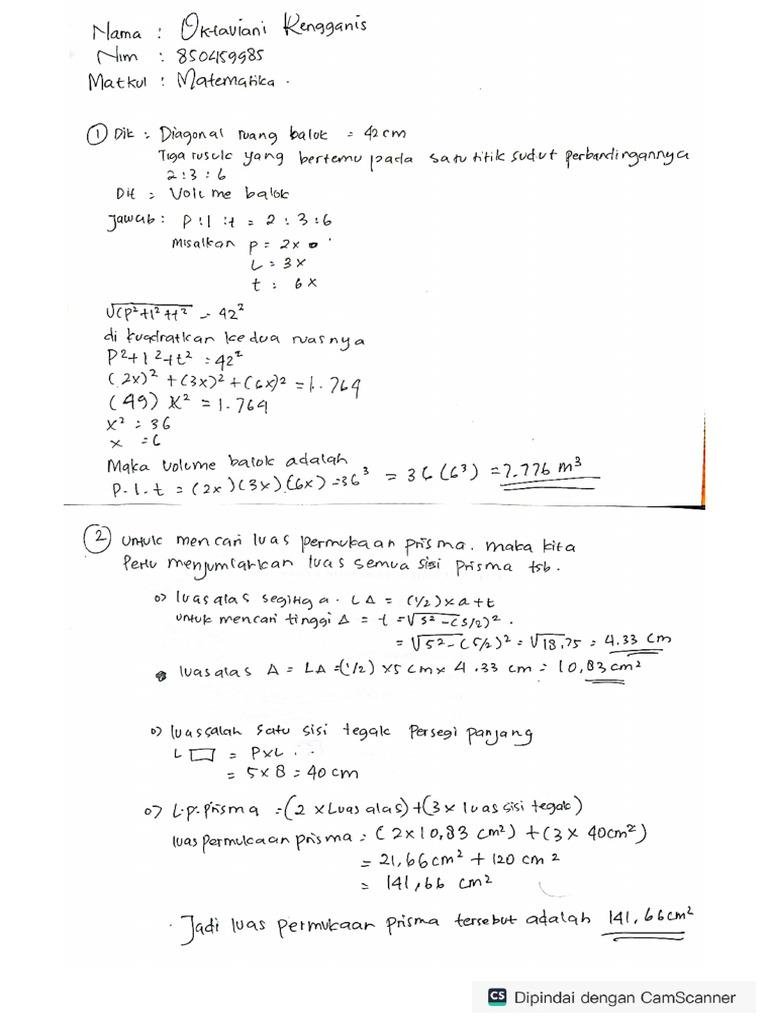 Nama : Oktaviani Rengganis
Nim : 850459985
Matkul : Matematika .
① Dik : Diagonal ruang balok = 42 cm
Tiga rusuk yang bertemu pada satu titik sudut perbandingannya
2 : 3 : 6
Dit = Volume balok
Jawab : P : l : t = 2 : 3 : 6
Misalkan p = 2x
L = 3x
t : 6x
√(p²+l²+t² = 42²
di kuadratkan kedua ruasnya
P²+l²+t² = 42²
(2x)² + (3x)² + (6x)² = 1.764
(49) x² = 1.764
x² = 36
x = 6
Maka volume balok adalah
P. l. t = (2x)(3x)(6x) = 36³ = 36 (6³) = 7.776 m³
② Untuk mencari luas permukaan prisma. maka kita
Perlu menjumlahkan luas semua sisi prisma tsb.
o) luas alas segitiga. L∆ = (1/2) x a + t
untuk mencari tinggi ∆ = t = √s² - (s/2)² .
= √5² - (5/2)² = √18,75 = 4.33 cm
luas alas ∆ = L∆ = (1/2) x 5 cm x 4.33 cm = 10,83 cm²
o) luas salah satu sisi tegak Persegi panjang
L ▭ = P x L . .
= 5 x 8 = 40 cm
o) L.p. prisma = (2 x Luas alas) + (3 x luas sisi tegak)
luas permukaan prisma = (2 x 10,83 cm²) + (3 x 40 cm²)
= 21,66 cm² + 120 cm 2
= 141,66 cm²
Jadi luas permukaan prisma tersebut adalah 141,66 cm²
CS Dipindai dengan CamScanner